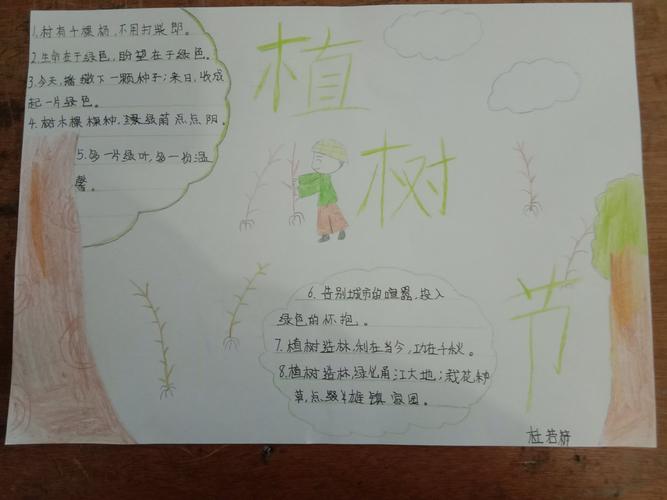 1.村有千棵杨,不用打柴郎。
2.生命在于绿色,盼望在于绿色。
3.今天,播撒下一颗种子;来日,收成
起一片绿色。
4.树木棵棵种,绿荫点点阴。
5.多一片绿叶,多一份温
馨。
植
树
节
6.告别城市的喧嚣,投入
绿色的怀抱。
7.植树造林,利在当今,功在千秋。
8.植树造林,绿化甬江大地;栽花种
草,点缀雄镇家园。
杜若妍